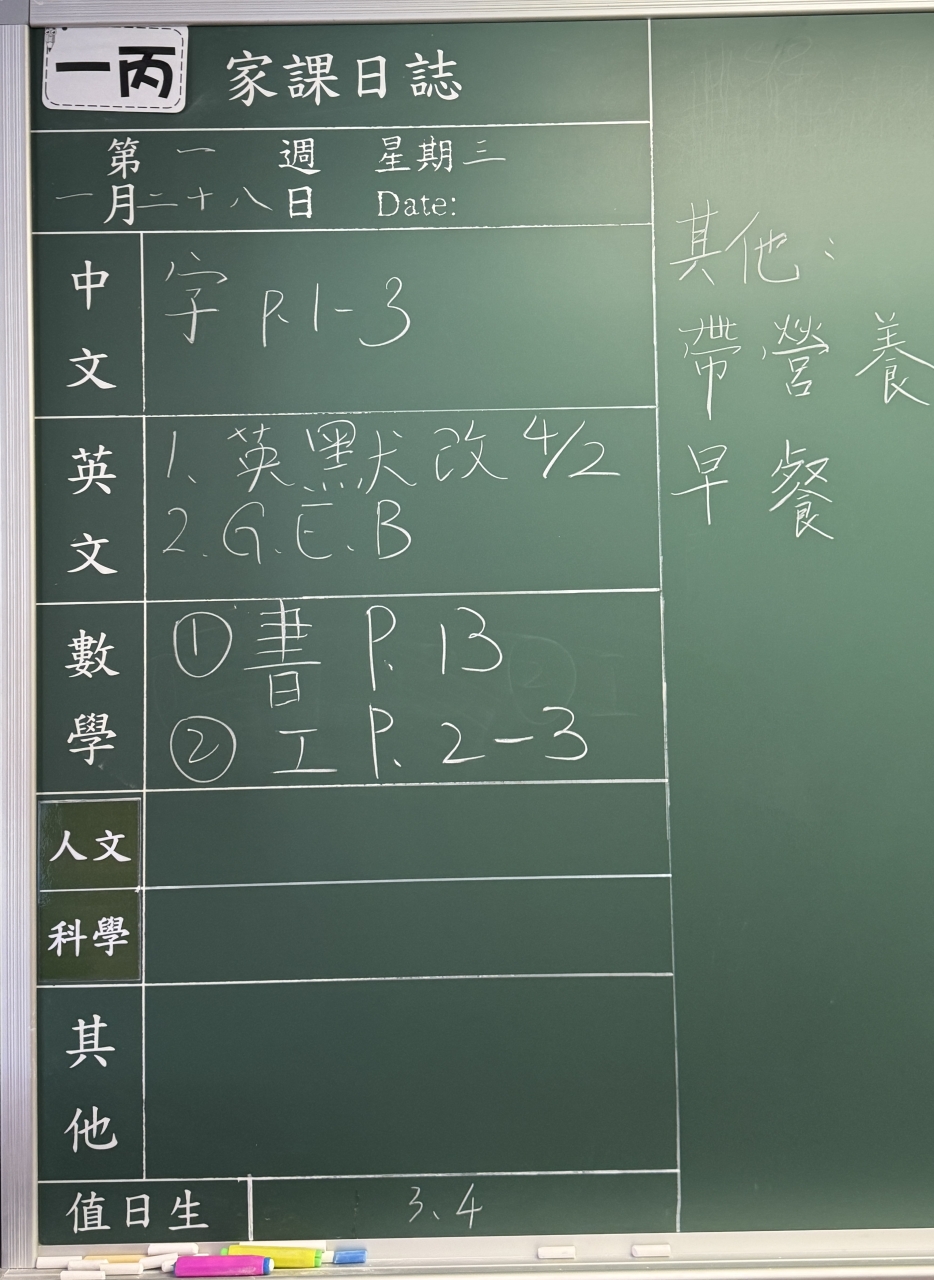 一丙 家課日誌
第一週 星期三
一月二十八日 Date:
中文
字 P.1-3
英文
1. 英默改 4/2
2. G.E.B
數學
① 書 P. 13
② 工 P. 2-3
人文
科學
其他
值日生
3、4
其他：
帶營養
早餐